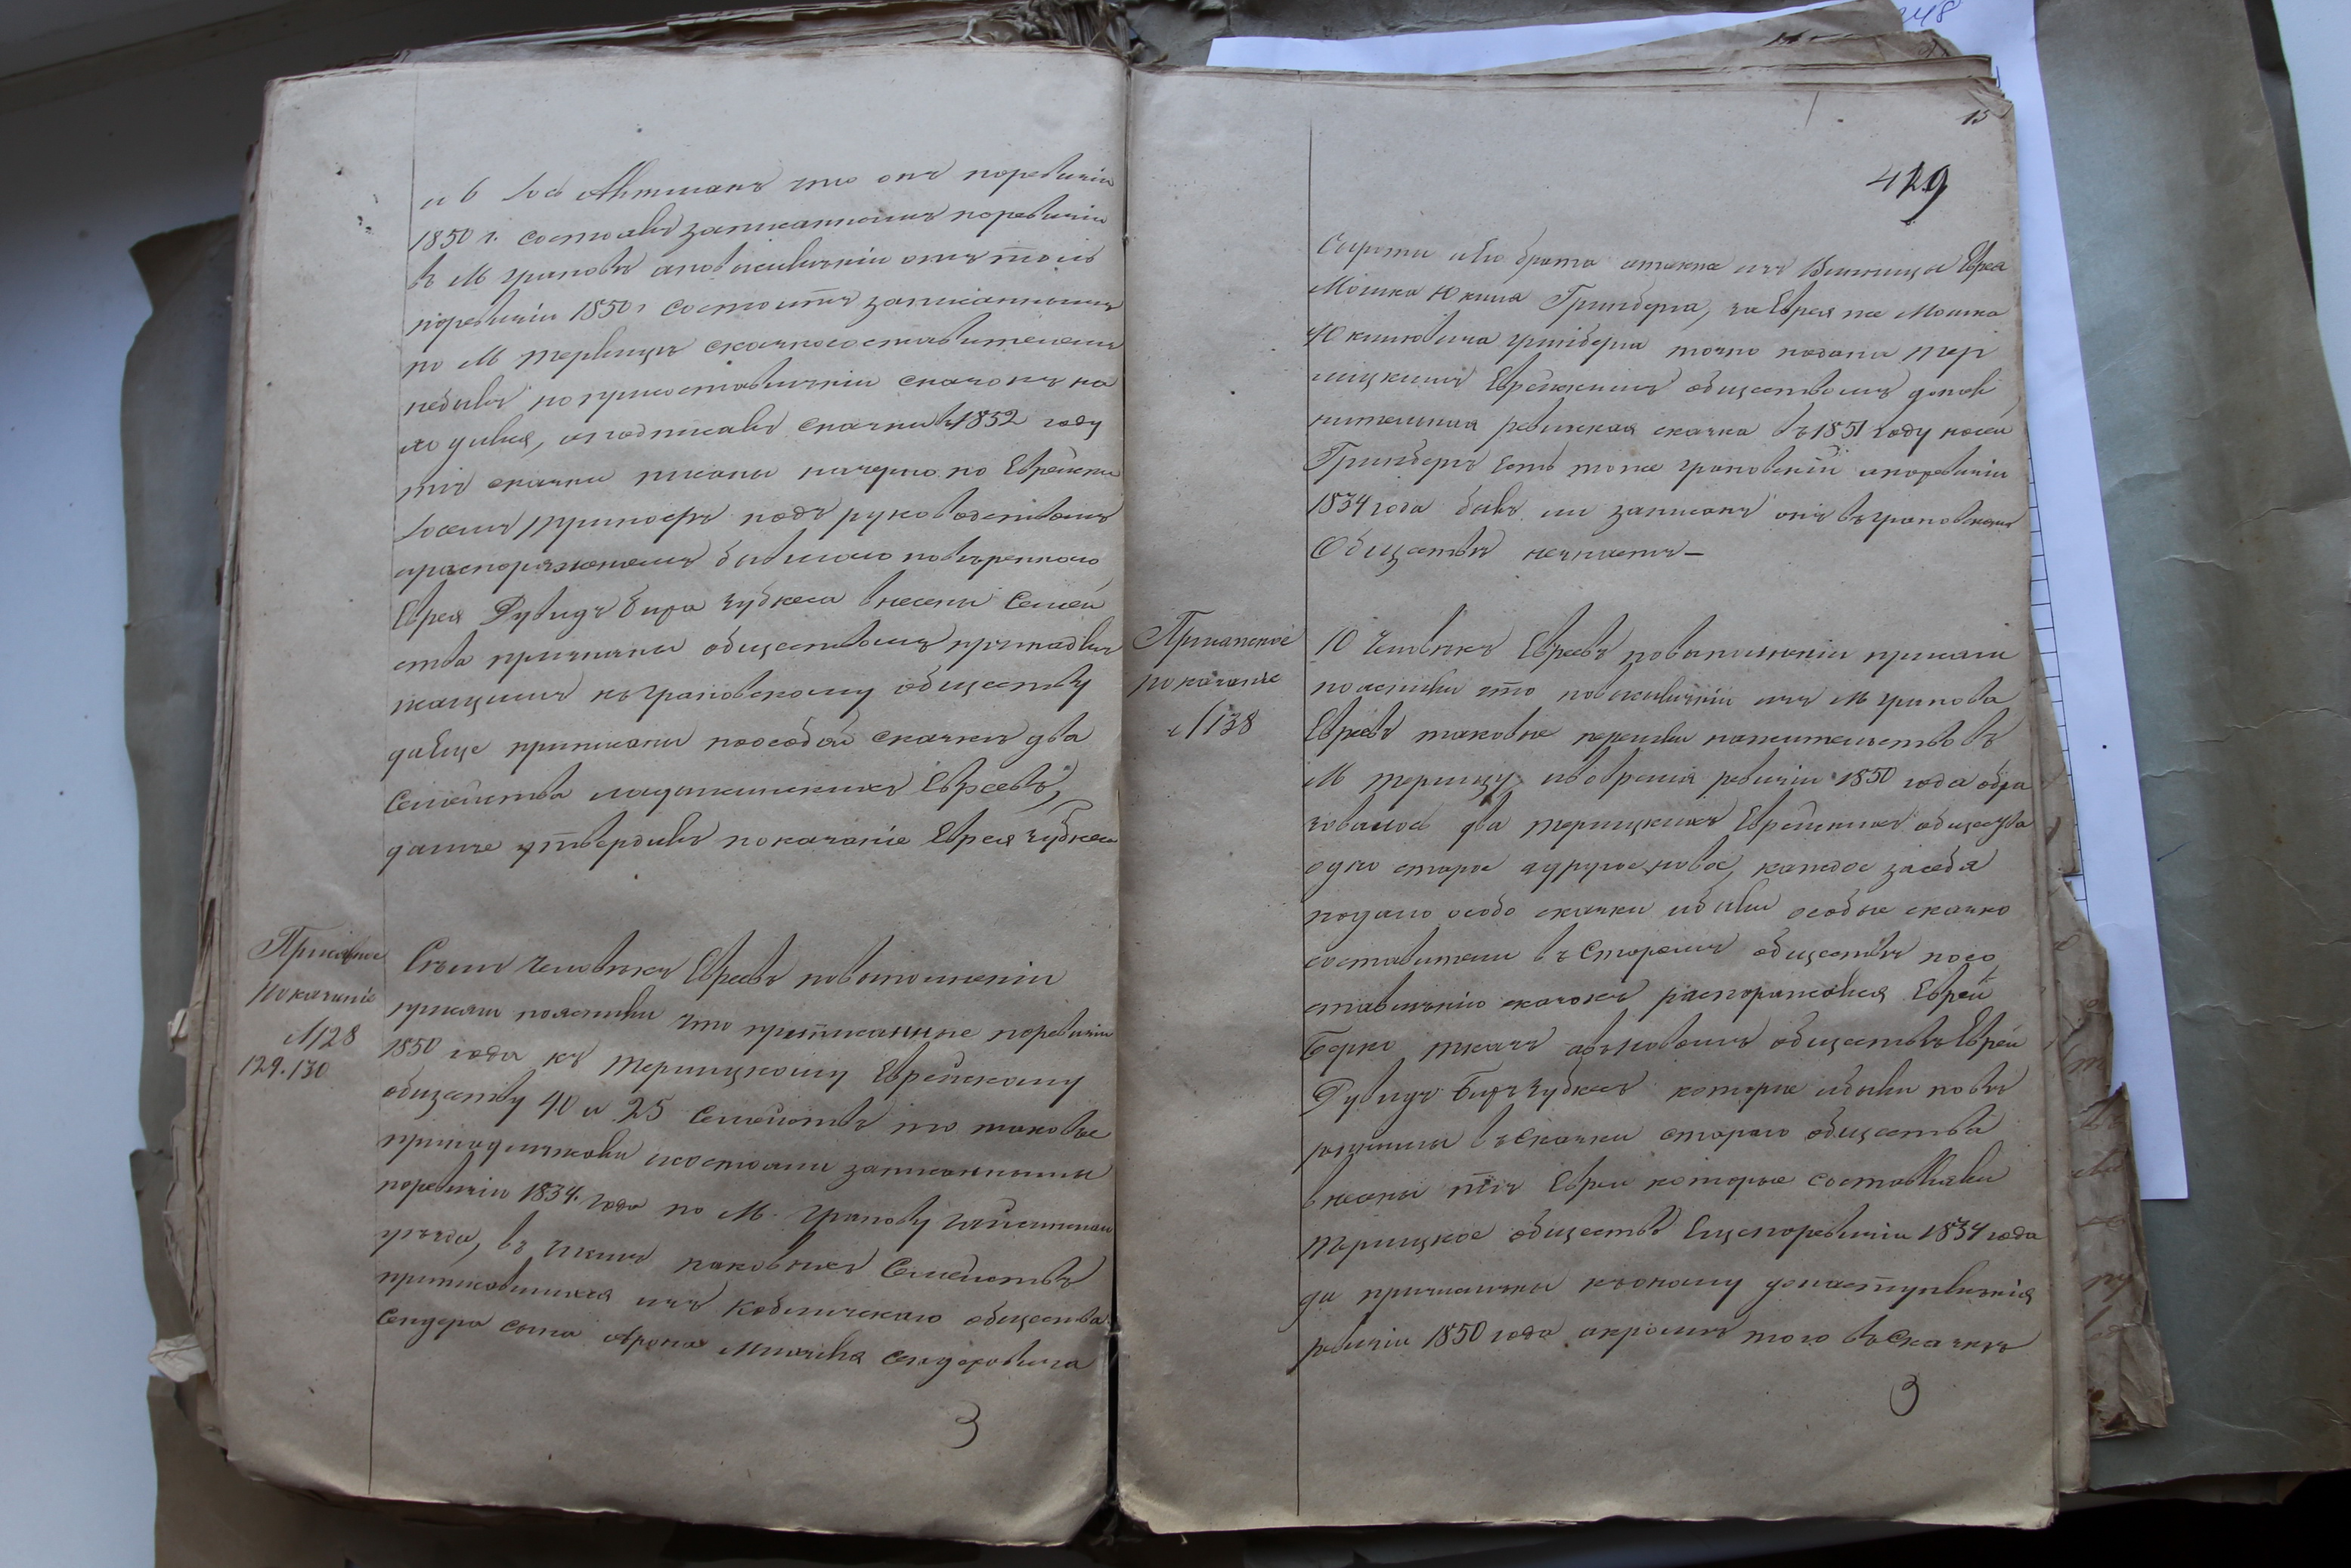 и 6 Іось Ахтманъ что онъ поревизіи
1850 г. состоялъ записаннымъ поревизіи
въ М Грановѣ аповыключеніи отъ толь
поревизіи 1850 г состоитъ записаннымъ
по М Терлицѣ сказкосоставителемъ
небылъ посоставленіи сказокъ на
ходился, иподписалъ сказки въ 1852 году
тѣ сказки писаны начерно по Еврейски
подъ руководствомъ
ираспоряженіемъ бывшаго повѣреннаго
Еврея Дувидъ Бира Зубкеса внесены Семей
ства причтены обществомъ принадле
жащимъ къ Грановскому обществу
даеще приписаны поособой сказкѣ два
Семейства ладыжинскихъ Евреевъ,
далѣе утвердилъ показаніе Еврея Зубкеса
Присяжное
показаніе
№128
129. 130
Семь человѣкъ Евреевъ повыполненіи
присяги пояснили что приписанные поревизіи
1850 года къ Терлицкому Еврейскому
обществу 40 и 25 Семействъ то таковые
принадлежали исостояли записанными
поревизіи 1834. года по М. Гранову Гайсинскаго
уѣзда, въ числѣ каковыхъ Семействъ
приписавшихся изъ Кублическаго общества
Сендера сына Арона Сендеровича
З
15
429
Сироты его брата изъ Винницы Еврея
Мошка Юкиля Гринберга, заЕврея же Мошка
Юкиловича Гринберга точно подана Тер
лицкимъ Еврейскимъ обществомъ допол
нительная ревизская сказка въ 1851 году
Гринбергъ есть тоже Грановскій ипоревизіи
1834 года былъ ли записанъ онъ въ Грановскомъ
Обществѣ незнаетъ—
Присяжное
показаніе
№138
10 Человѣкъ Евреевъ повыполненіи присяги
пояснили что повыключеніи изъ М Гранова
Евреевъ таковые перешли нажительство въ
М Терлицу ивовремя ревизіи 1850 года обра
зовалось два Терлицкихъ Еврейскихъ общества
одно старое адругое новое, каждое засебя
подало особо сказки ибыли особые сказко
составители въ Старомъ обществѣ посо
ставленію сказокъ распоряжался Еврей
Берко Ткачъ авъновомъ обществѣ Еврей
Дувидъ Биръ Зубкесъ которые ибыли повѣ
ренными въсказки стараго общества
внесены тѣ Евреи которые составляли
Терлицкое общество Ещепоревизіи 1834 года
да причислены къоному донаступленія
ревизіи 1850 года акромѣ того въСказкѣ
З